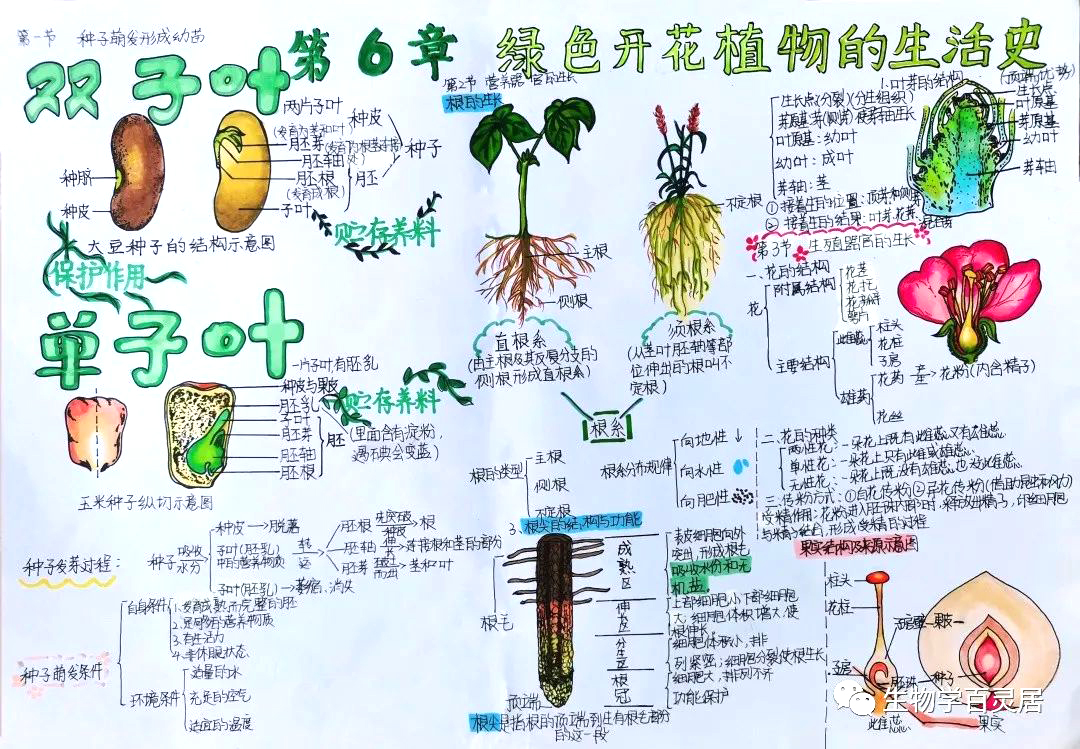 第一节 种子萌发形成幼苗
第6章 绿色开花植物的生活史
双子叶
两片子叶
(发育为茎和叶)
胚芽
胚轴
胚根
(发育成根)
子叶
种皮
胚
种子
种脐
种皮
大豆种子的结构示意图
贮存养料
保护作用
单子叶
一片子叶,有胚乳
种皮与果皮
胚乳
子叶
胚芽
胚轴
胚根
胚
贮存养料
(里面含有淀粉,
遇碘会变蓝)
玉米种子纵切示意图
种子发芽过程:
种子
吸收
水分
种皮→脱落
子叶(胚乳)
中的营养物质
转
胚根
突破
种皮
根
胚轴
伸
长
连接根和茎的部分
胚芽
茎和叶
子叶(胚乳)→萎缩、消失
种子萌发条件
自身条件
1.发育成熟而完整的胚
2.足够的营养物质
3.有活力
4.非休眠状态
环境条件
适量的水
充足的空气
适宜的温度
第2节 营养器官的生长
根的生长
主根
侧根
不定根
直根系
(由主根及其各级分支的
侧根形成直根系)
须根系
(从茎叶胚轴等部
位伸出的根叫不
定根)
根系
根的类型
主根
侧根
不定根
根系分布规律
向地性
向水性
向肥性
3、根尖的结构与功能
根毛
顶端
成熟区
表皮细胞向外
突出,形成根毛
吸收水份和无
机盐.
伸长区
上部细胞小下部细胞
大;细胞体积增大,使
根伸长
分生区
细胞体积小,排
列紧密;细胞分裂使根生长
根冠
细胞大,排列不齐
功能保护
根尖是指根的顶端到生有根毛部分
的这一段
1.叶芽的结构
(顶端优势)
生长点(分裂)(分生组织)
芽原基:芽(侧芽)
叶原基:幼叶
幼叶:成叶
芽轴:茎
①按着生的位置:顶芽和侧芽
②按着生的结果:叶芽、花芽、混合芽
生长点
叶原基
芽原基
幼叶
芽轴
第3节 生殖器官的生长
一、花的结构
花
附属结构
花茎
花托
花萼
主要结构
雌蕊
柱头
花柱
子房
雄蕊
花药
产生
花粉(内含精子)
花丝
二、花的种类
两性花:一朵花上既有雌蕊又有雄蕊.
单性花:一朵花上只有雌蕊或雄蕊.
无性花:一朵花上既没有雄蕊也没雌蕊.
三、传粉方式:①自花传粉②异花传粉(借助昆虫和风力)
果实结构及来源示意图
柱头
花柱
子房壁
果皮
子房
胚珠
种子
雌蕊
果实
生物学百灵居